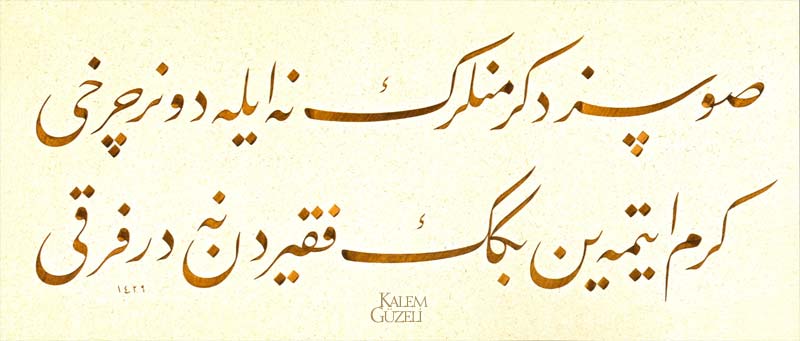 صوسز دكرمنلرك نه ایله دونر چرخی
كرم ایتمه‌ین بكك فقیردن نه در فرقی
١٤٢٩
KALEM
GÜZELİ